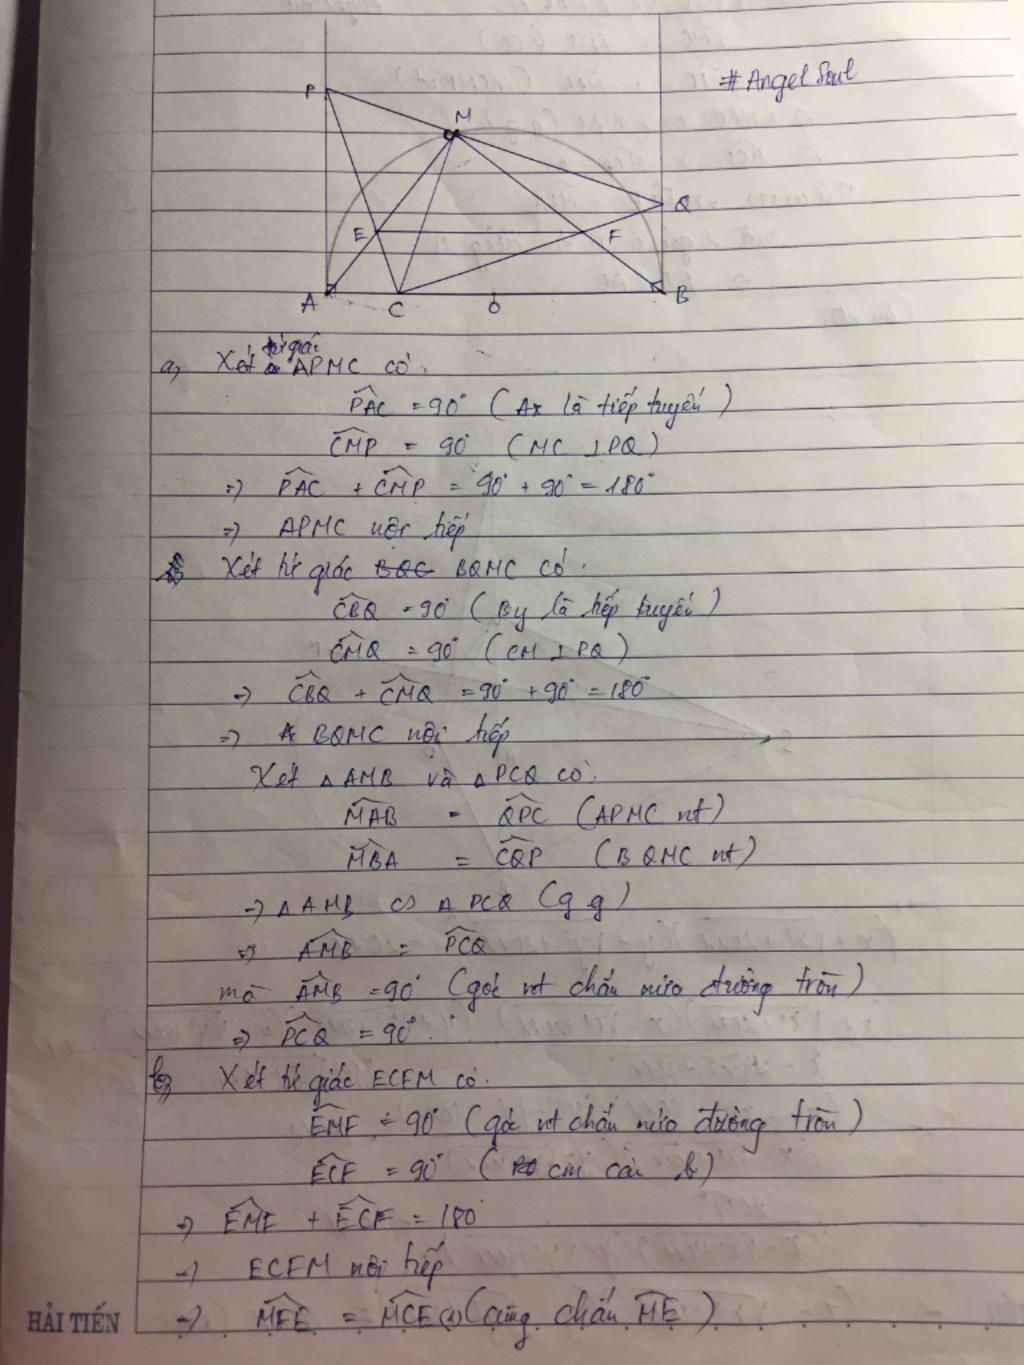 # Angel Soul
P
M
Q
E
F
A
C
O
B
a, Xét tứ giác APMC có:
PAC = 90° (Ax là tiếp tuyến)
CMP = 90° (MC ⊥ PQ)
=> PAC + CMP = 90° + 90° = 180°
=> APMC nội tiếp
Xét tứ giác BQMC có:
CBQ = 90° (By là tiếp tuyến)
CMQ = 90° (CM ⊥ PQ)
=> CBQ + CMQ = 90° + 90° = 180°
=> BQMC nội tiếp
Xét △AMB và △PCQ có:
MAB = QPC (APMC nt)
MBA = CQP (BQMC nt)
=> △AMB ∽ △PCQ (g g)
=> AMB = PCQ
mà AMB = 90° (góc nt chắn nửa đường tròn)
=> PCQ = 90°
Xét tứ giác ECFM có:
EMF = 90° (góc nt chắn nửa đường tròn)
ECF = 90° (cm câu b)
=> EMF + ECF = 180
=> ECFM nội tiếp
=> MFE = MCE (1) (cùng chắn ME)
HẢI TIẾN